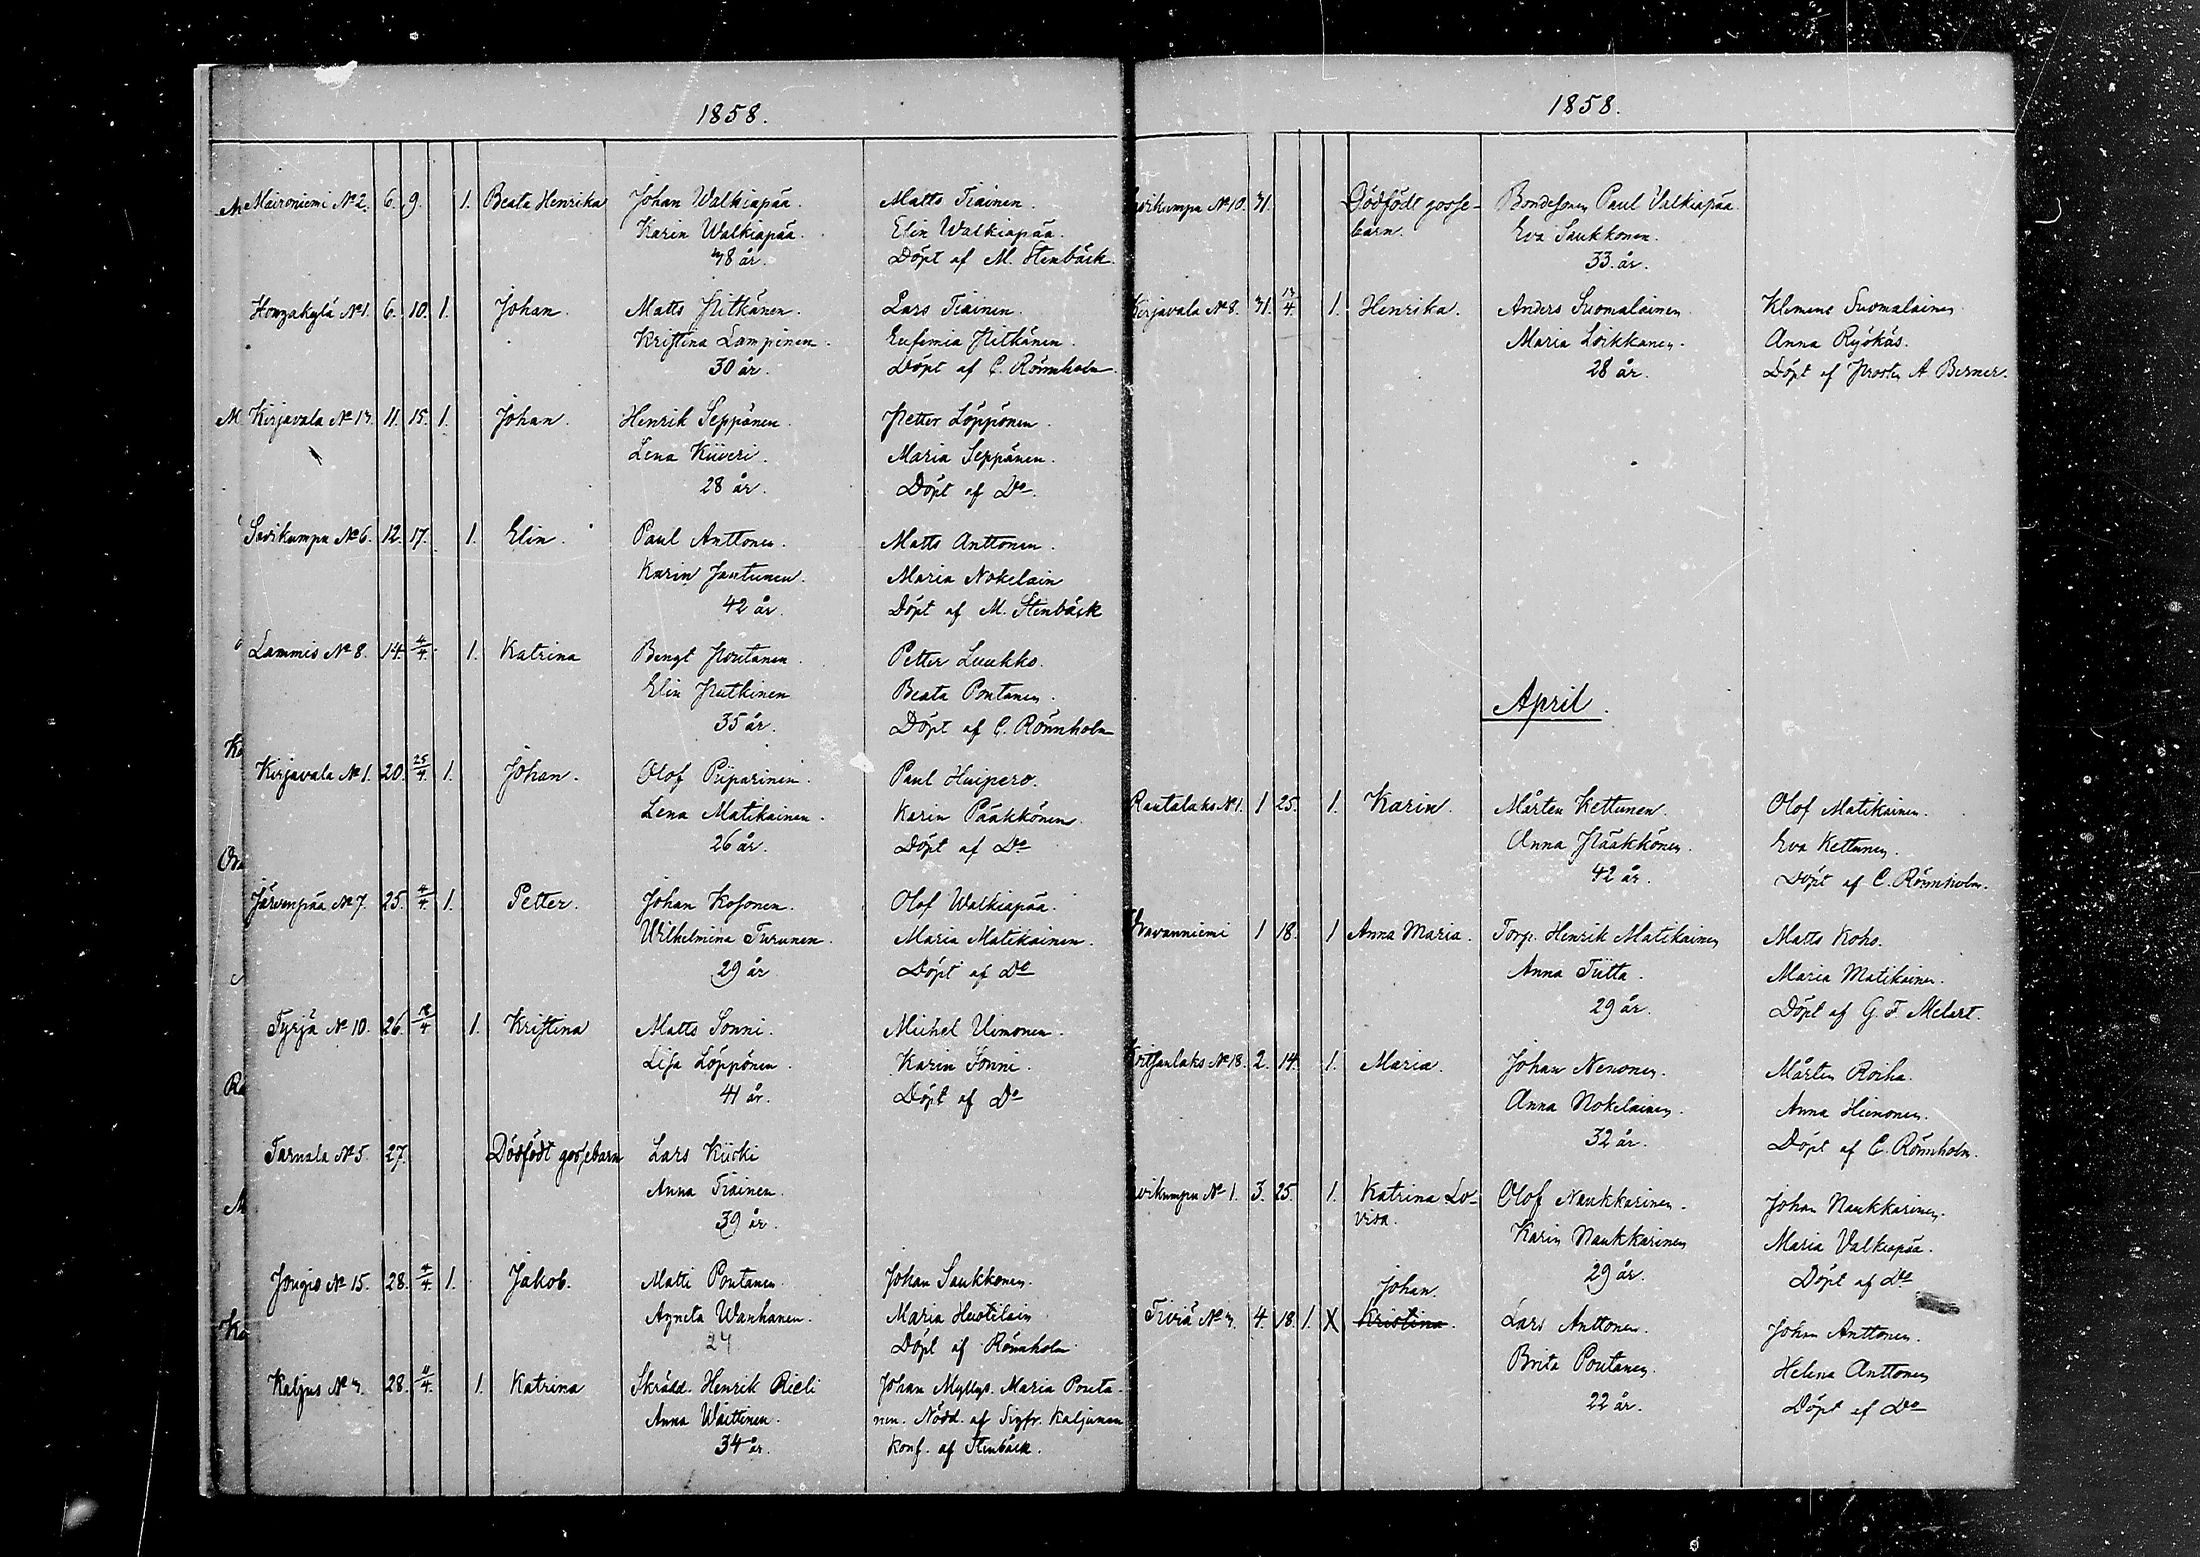 1858.
Maironiemi No 2. 6. 9. 1. Beata Henrika Johan Walkiapää. Matts Tiainen.
Karin Walkiapää. Elin Walkiapää.
38 år. Döpt af M. Stenbäck.
Honzakylä No 1. 6. 10. 1. Johan. Matts Pitkänen. Lars Tiainen.
Kristina Lampinen. Eufemia Pitkänen.
30 år. Döpt af C. Rönnholm.
M Kirjavala No 13. 11. 15. 1. Johan. Henrik Seppänen. Petter Löppönen.
Lena Kiiveri. Maria Seppänen.
28 år. Döpt af Do.
Savikumpu No 6. 12. 17. 1. Elin. Paul Anttonen. Matts Anttonen.
Karin Jantunen. Maria Nokelain
42 år. Döpt af M. Stenbäck
Lammis No 8. 14. 4/4. 1. Katrina Bengt Poutanen. Petter Luukko.
Elin Putkinen Beata Poutanen.
35 år. Döpt af C. Rönnholm
Ko
Kirjavala No 1. 20. 25/4. 1. Johan. Olof Piiparinen. Paul Huipero.
Lena Matikainen. Karin Pääkkönen.
26 år. Döpt af Do
Järvenpää No 7. 25. 4/4. 1. Petter. Johan Kosonen. Olof Walkiapää.
Wilhelmina Turunen. Maria Matikainen.
29 år Döpt af Do
Tyrjä No 10. 26. 18/4 1. Kristina Matts Sonni. Michel Uimonen.
Lisa Löppönen. Karin Sonni.
41 år. Döpt af Do
Ra
Tarnala No 5. 27. Dödfödt gossebarn Lars Kiiski
Anna Tiainen.
39 år.
Jougio No 15. 28. 4/4 1. Jakob. Matti Poutanen. Johan Saukkonen.
Agneta Wanhanen. Maria Huotilain
24 Döpt af Rönnholm
Kaljus No 3. 28. 11/4. 1. Katrina Skrädd. Henrik Rieli Johan Myllys. Maria Pouta-
Anna Wäittinen. nen. Nödd. af Sigfr. Kaljunen
34 år. Konf. af Stenbäck.
1858.
Savikumpu No 10. 31. Dödfödt gosse- Bondesonen Paul Valkiapää
barn. Eva Saukkonen.
33 år.
Kirjavala No 8. 31. 13/4. 1. Henrika. Anders Suomalainen Klemens Suomalainen
Maria Loikkanen. Anna Ryökäs.
28 år. Döpt af Prosten A. Berner.
April.
Rautalaks No 1. 1 25. 1. Karin. Mårten Kettunen. Olof Matikainen.
Anna Pääkkönen. Eva Kettunen.
42 år. Döpt af C. Rönnholm.
Oravanniemi 1 18. 1 Anna Maria. Torp. Henrik Matikainen Matts Koho.
Anna Tiitta. Maria Matikainen.
29 år. Döpt af G. F. Melart.
No 18. 2. 14. 1. Maria. Johan Nenonen. Mårten Roiha.
Anna Nokelainen. Anna Hienonen.
32 år. Döpt af C. Rönnholm.
Savikumpu No 1. 3. 25. 1. Katrina Lo- Olof Naukkarinen. Johan Naukkarinen.
visa. Karin Naukkarinen Maria Valkiapää.
29 år. Döpt af Do
Johan.
Tiviä No 3. 4. 18. 1. X Kristina. Lars Anttonen. Johan Anttonen.
Brita Poutanen. Helena Anttonen
22 år. Döpt af Do